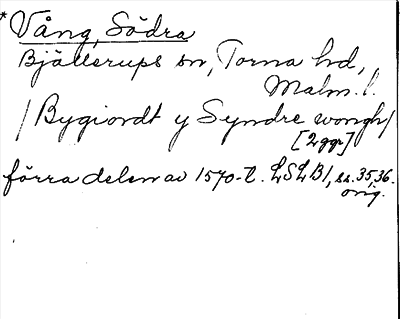 *Vång, Södra
Bjällerups sn, Torna hd,
Malm. l.
/Bygiordt y Syndre wongh/
[2 ggr]
förra delen av 1570-t. LSLB1, ss. 35, 36.
orig.